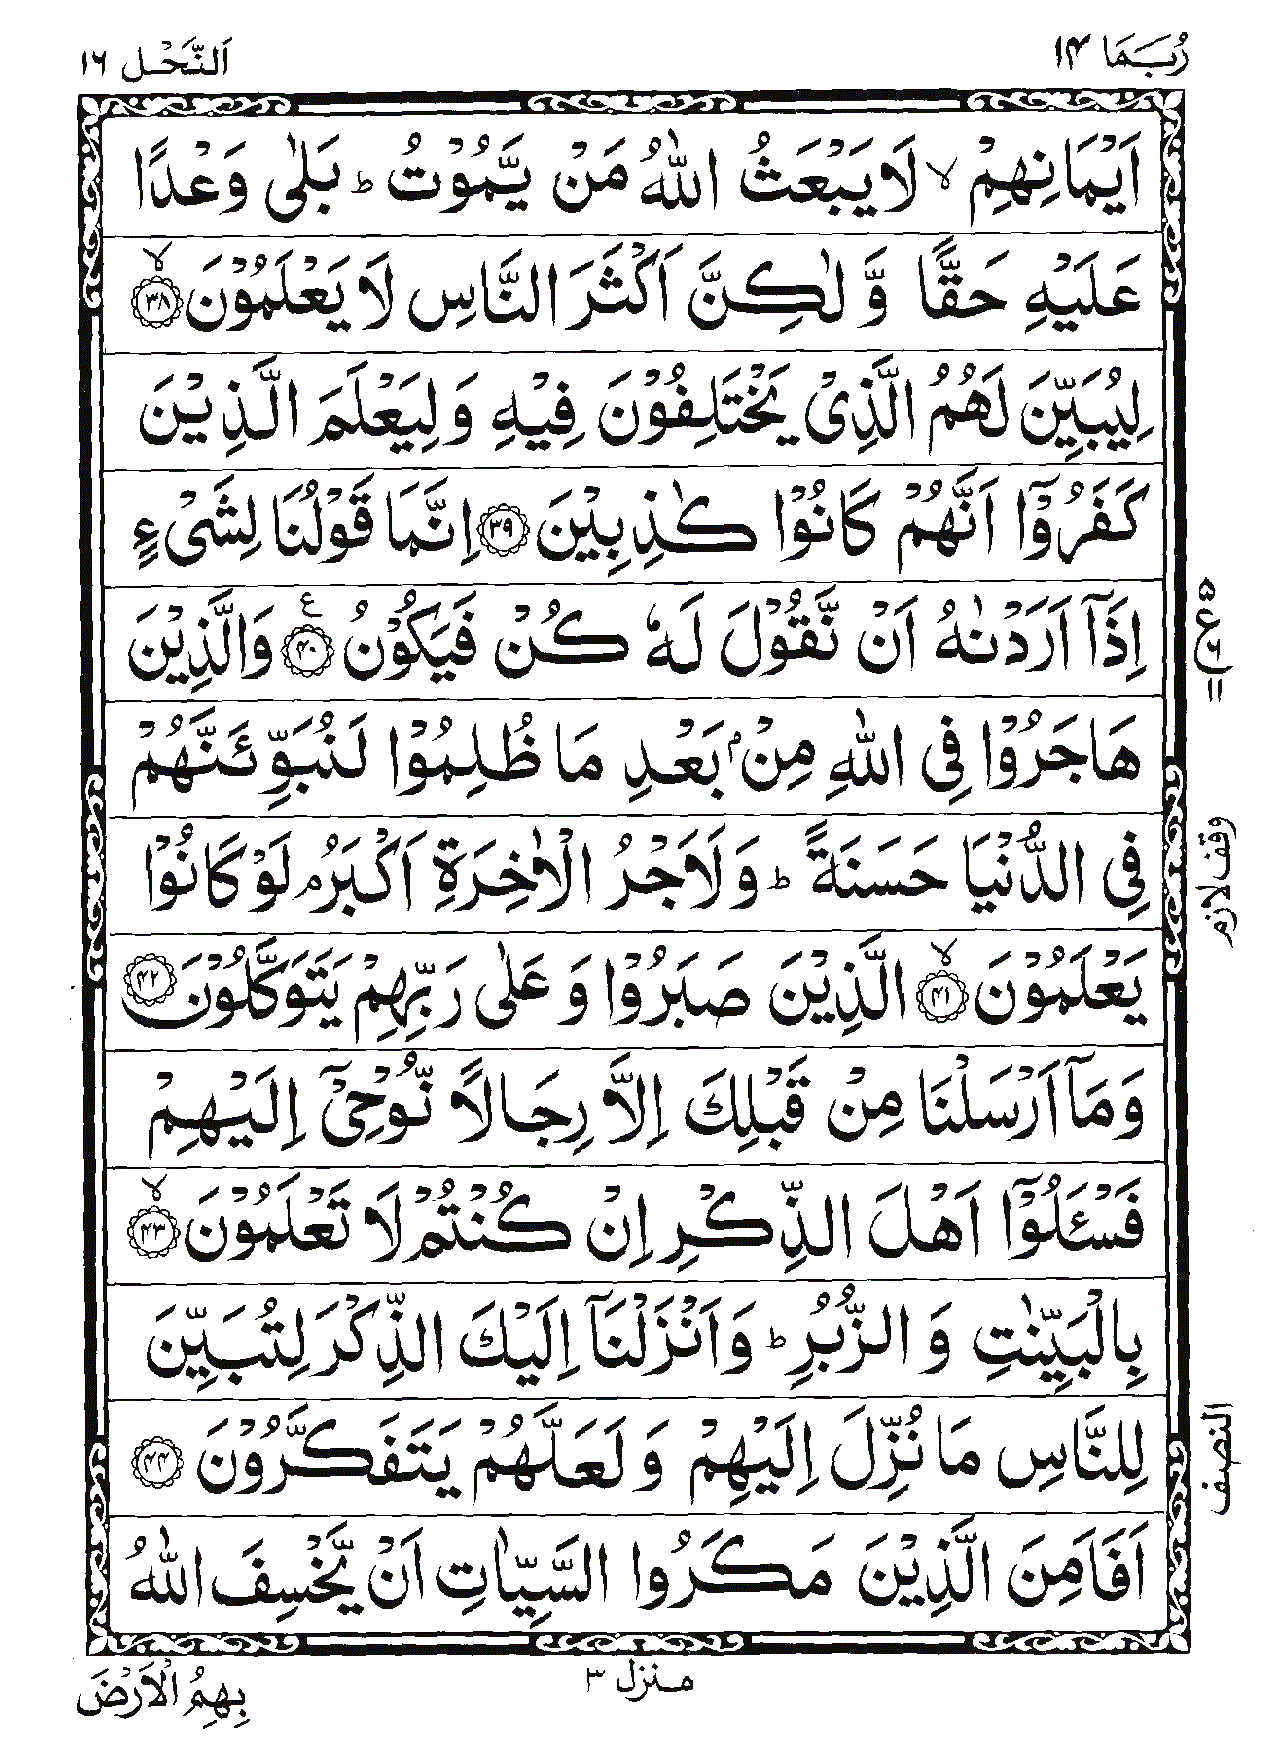 رُبَمَا ۱۴
اَلنَّحۡل ۱۶
اَيۡمَانِهِمۡ ۙ لَا يَبۡعَثُ اللّٰهُ مَنۡ يَّمُوۡتُ ؕ بَلٰى وَعۡدًا
عَلَيۡهِ حَقًّا وَّ لٰكِنَّ اَكۡثَرَ النَّاسِ لَا يَعۡلَمُوۡنَ ۙ‏ ﴿۳۸﴾
لِيُبَيِّنَ لَهُمُ الَّذِىۡ يَخۡتَلِفُوۡنَ فِيۡهِ وَ لِيَعۡلَمَ الَّذِيۡنَ
كَفَرُوۡۤا اَنَّهُمۡ كَانُوۡا كٰذِبِيۡنَ ﴿۳۹﴾ اِنَّمَا قَوۡلُنَا لِشَىۡءٍ
اِذَاۤ اَرَدۡنٰهُ اَنۡ نَّقُوۡلَ لَهٗ كُنۡ فَيَكُوۡنُ ﴿۴۰﴾ ع وَالَّذِيۡنَ
هَاجَرُوۡا فِى اللّٰهِ مِنۡۢ بَعۡدِ مَا ظُلِمُوۡا لَـنُبَوِّئَنَّهُمۡ
فِى الدُّنۡيَا حَسَنَةً ؕ وَلَاَجۡرُ الۡاٰخِرَةِ اَكۡبَرُ ۘ لَوۡ كَانُوۡا
يَعۡلَمُوۡنَ ۙ ﴿۴۱﴾ الَّذِيۡنَ صَبَرُوۡا وَ عَلٰى رَبِّهِمۡ يَتَوَكَّلُوۡنَ ﴿۴۲﴾
وَمَاۤ اَرۡسَلۡنَا مِنۡ قَبۡلِكَ اِلَّا رِجَالًا نُّوۡحِىۡۤ اِلَيۡهِمۡ
فَسۡـَٔلُوۡۤا اَهۡلَ الذِّكۡرِ اِنۡ كُنۡتُمۡ لَا تَعۡلَمُوۡنَ ۙ ﴿۴۳﴾
بِالۡبَيِّنٰتِ وَ الزُّبُرِ ؕ وَاَنۡزَلۡنَاۤ اِلَيۡكَ الذِّكۡرَ لِتُبَيِّنَ
لِلنَّاسِ مَا نُزِّلَ اِلَيۡهِمۡ وَ لَعَلَّهُمۡ يَتَفَكَّرُوۡنَ ﴿۴۴﴾
اَفَاَمِنَ الَّذِيۡنَ مَكَرُوا السَّيِّاٰتِ اَنۡ يَّخۡسِفَ اللّٰهُ
۵
ع
۶
۱۱
وقف لازم
النصف
منزل ۳
بِهِمُ الۡاَرۡضَ